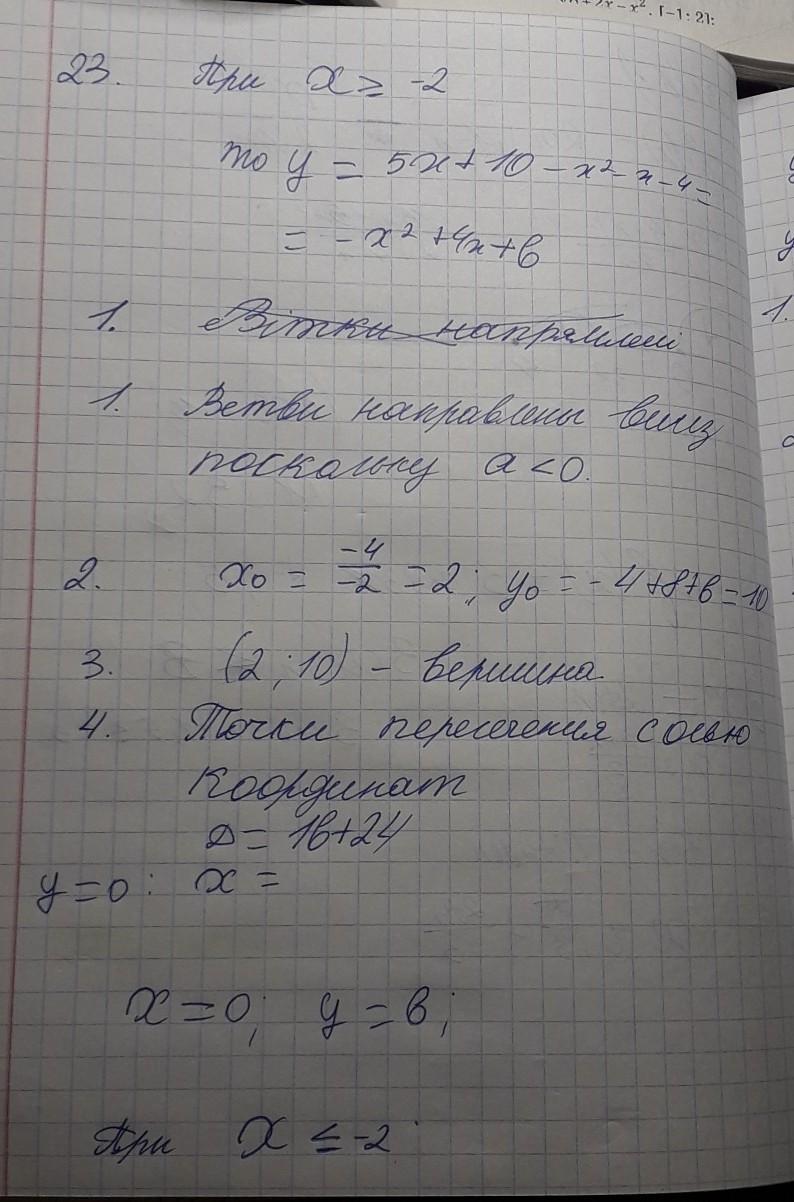 x - x². [-1; 2]:
23. При x ≥ -2
то y = 5x + 10 - x² - x - 4 =
= - x² + 4x + 6
1. Вітки напрямлені
1. Ветви направлены вниз
поскольку a < 0.
2. x₀ = -4/-2 = 2; y₀ = - 4 + 8 + 6 = 10
3. (2; 10) - вершина
4. Точки пересечения с осью
координат
D = 16 + 24
y = 0: x =
x = 0; y = 6;
При x ≤ -2